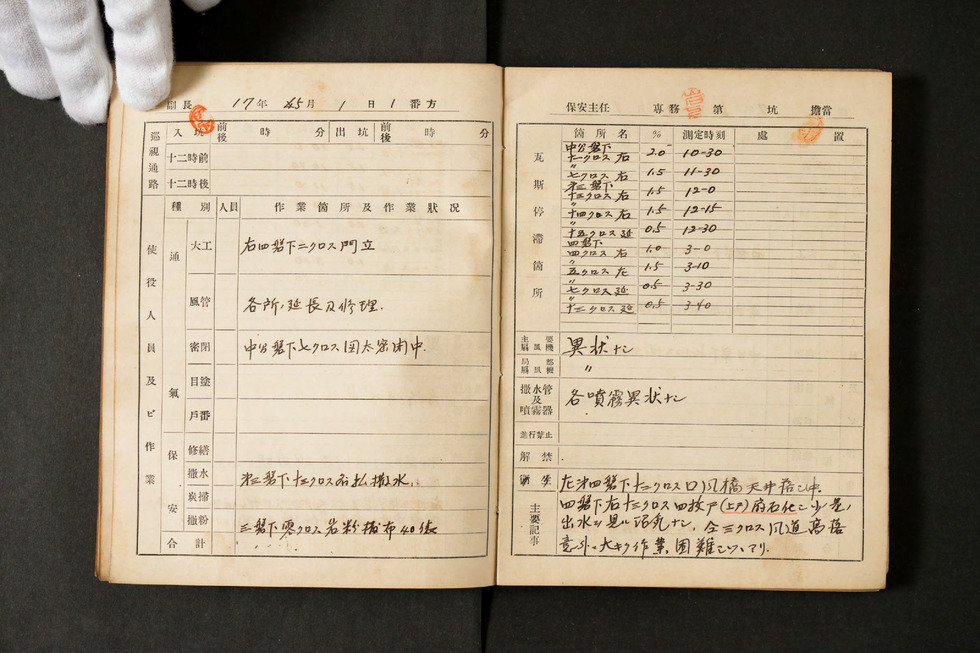 副長 17年 5月 1日 1番方
巡視通路
入坑 前後 時 分 出坑 前後 時 分
十二時前
十二時後
使役人員及ビ作業
種別 人員 作業箇所及作業狀况
通氣
大工 右四盤下二クロス門立
風管 各所ノ延長及修理.
密閉 中分盤下七クロス 密閉中.
目塗
戶番
保安
修繕
撒水 第三盤下十三クロス 撒水.
炭掃
撒粉 三盤下零クロス岩粉撒布40袋
合計
保安主任 專務 第 坑 擔當
瓦斯停滯箇所
箇所名 % 測定時刻 處置
中分盤下
十一クロス 右 2.0 10-30
〃
七クロス 右 1.5 11-30
第三盤下
十三クロス 右 1.5 12-0
〃
十四クロス 右 1.5 12-15
〃
十五クロス 延 0.5 12-30
四盤下
四クロス 右 1.0 3-0
〃
五クロス 左 1.5 3-10
〃
七クロス 延 0.5 3-30
〃
十二クロス 延 0.5 3-40
主要扇風機 異狀ナシ
局部扇風機 〃
撒水管及噴霧器 各噴霧異狀ナシ
進行禁止
解禁
衛生 左第四盤下十三クロス口風橋天井落シ中.
主要記事 四盤下右十三クロス四枚戸(上戸)
出水ヲ見ル 仝三クロス風道高落
意外ニ大キク作業困難シツツアリ.